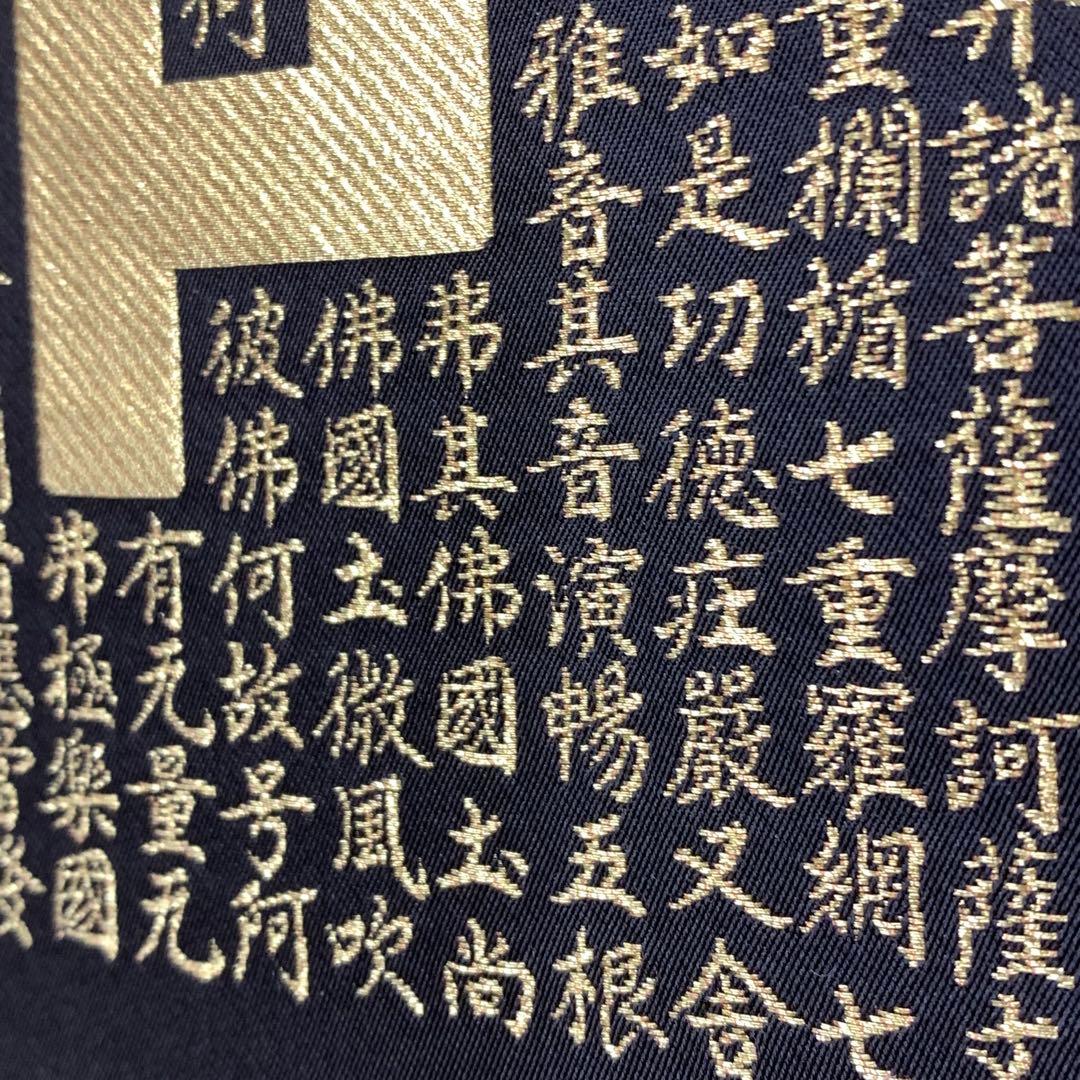 諸菩薩摩訶薩
重欄楯七重羅網七
如是功德庄嚴又舍
雅音其音演暢五根
弗其佛國土尚
佛國土微風吹
彼佛何故号阿
有无量无
弗極樂國